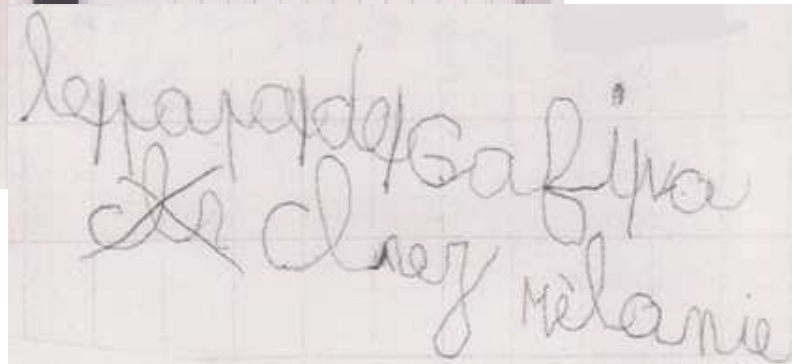 le papa/de/Gafi va
chez Mèlanie